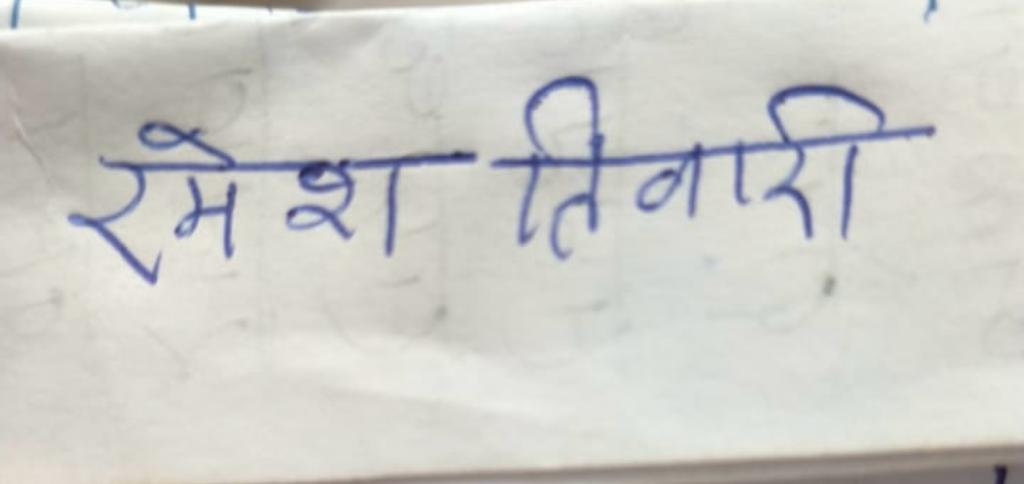 रमेश तिवारी